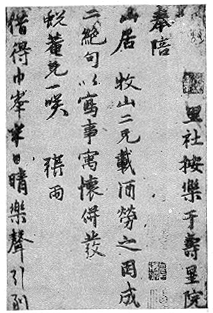 奉陪
里社按樂于壽星院
山居 牧山二兄載酒勞之因成
二絕句以寫事寓懷併發
蛻董兄一咲 得雨
借得巾峯半日晴樂聲引到